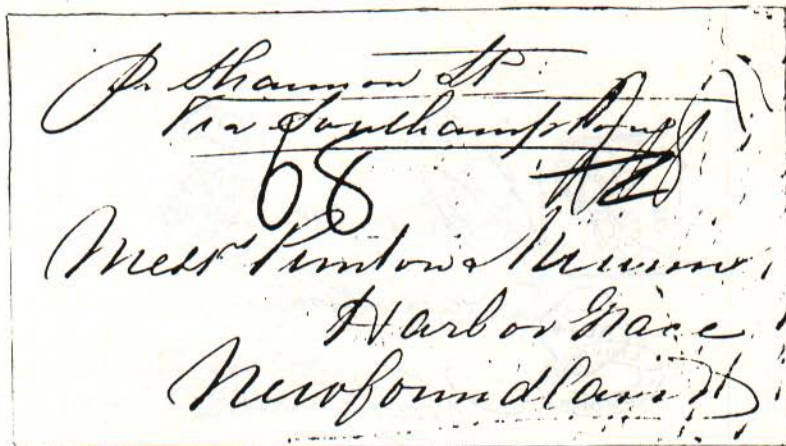 Pr Shannon St
Via Southampton
68
Messrs Punton & Munn
Harbor Grace
Newfoundland